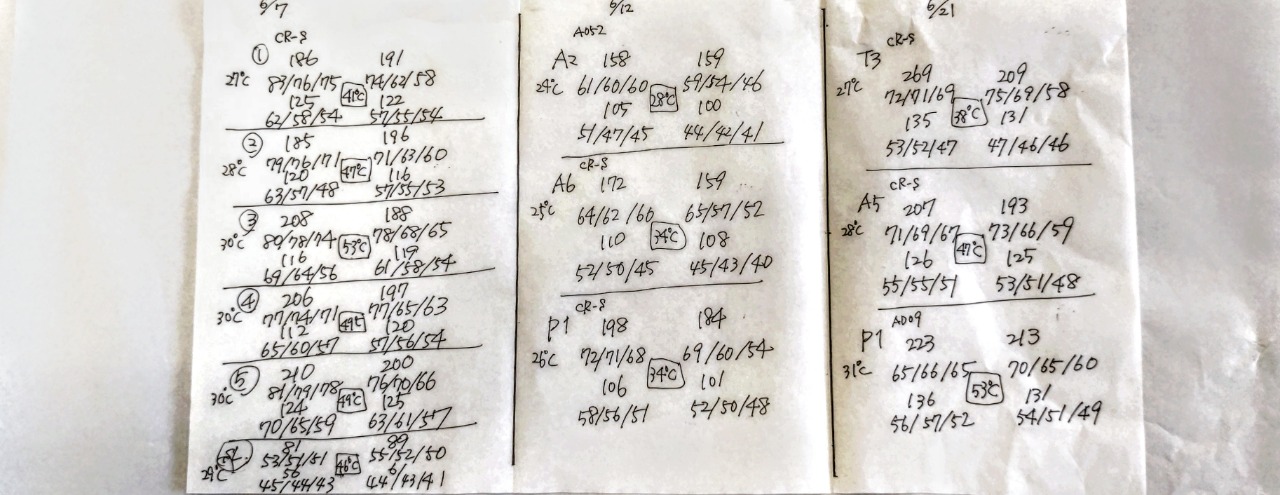 6/7
CR-S
① 186 191
27°C 89/76/75 41°C 74/62/58
125 122
62/58/54 57/55/54
② 185 196
28°C 79/76/71 47°C 71/63/60
120 116
63/57/48 57/55/53
③ 208 188
30°C 80/78/74 53°C 78/68/65
116 119
69/64/56 61/58/54
④ 206 197
30°C 77/74/71 49°C 77/65/63
112 120
65/60/57 57/56/54
⑤ 210 200
30°C 81/79/78 49°C 76/70/66
124 125
70/65/59 63/61/57
81 89
29°C 53/51/51 46°C 55/52/50
56 61
45/44/43 44/43/41
6/12
A052
A2 158 159
24°C 61/60/60 28°C 59/54/46
105 100
51/47/45 44/42/41
CR-S
A6 172 159
25°C 64/62/60 34°C 65/57/52
110 108
52/50/45 45/43/40
CR-S
P1 198 184
26°C 72/71/68 34°C 69/60/54
106 101
58/56/51 52/50/48
6/21
CR-S
T3 269 209
27°C 72/71/69 38°C 75/69/58
135 131
53/52/47 47/46/46
CR-S
A5 207 193
28°C 71/69/67 47°C 73/66/59
126 125
55/55/51 53/51/48
AD09
P1 223 213
31°C 65/66/65 53°C 70/65/60
136 131
56/57/52 54/51/49